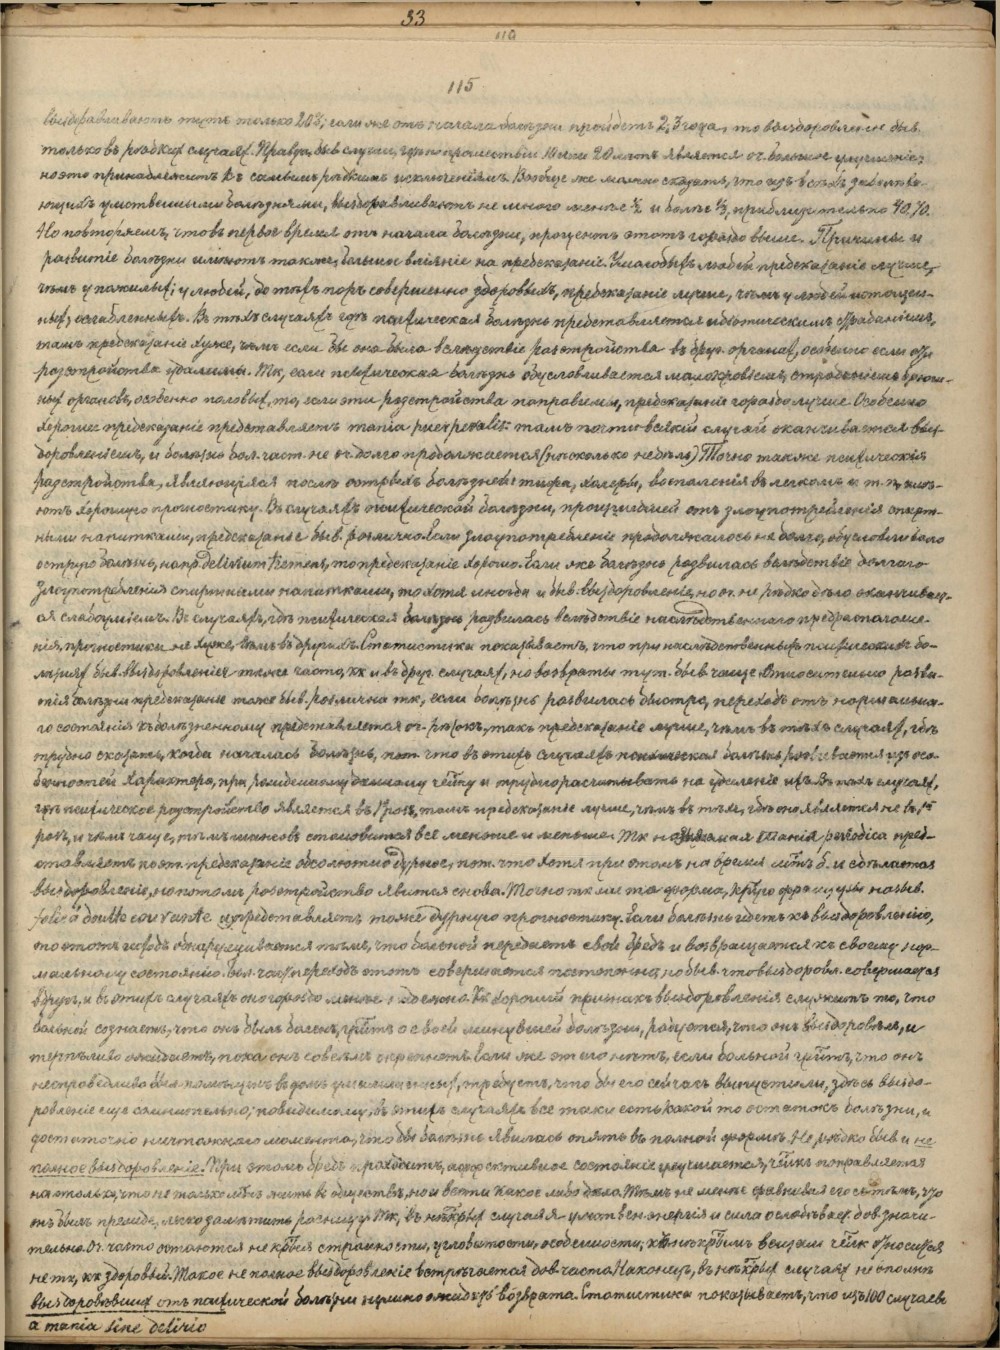 33
110
115
выздоравливаютъ только 20%; если же отъ начала болѣзни пройдетъ 2, 3 года, то выздоровленіе быв.
только въ рѣдкихъ случаях. Правда, быв. случаи, гдѣ по прошествіи 10 или 20 лѣтъ является оч. большое улучшеніе,
но это принадлежитъ къ самымъ рѣдкимъ исключеніямъ. Вообще же можно сказать, что изъ всѣхъ заболѣва-
ющихъ умственными болѣзнями, выздоравливаютъ не много менѣе ½ и болѣе ⅓, приблизительно 40%.
Но повторяемъ, что въ первое время отъ начала болѣзни, процентъ этотъ гораздо выше. Причины и
развитіе болѣзни имѣютъ также большое вліяніе на предсказаніе. У молодыхъ людей предсказаніе лучше,
чѣмъ у пожилыхъ; у людей, до тѣхъ поръ совершенно здоровыхъ, предсказаніе лучше, чѣмъ у людей истощен-
ныхъ, ослабленныхъ. Въ тѣхъ случаяхъ гдѣ психическая болѣзнь представляется идіопатическимъ страданіемъ,
тамъ предсказаніе хуже, чѣмъ если бы она была вслѣдствіе разстройства въ друг. органах, особенно если эти
разстройства удалимы. Тк, если психическая болѣзнь обусловливается малокровіемъ, страданіемъ брюш-
ныхъ органовъ, особенно половых, то, если эти разстройства поправимы, предсказаніе гораздо лучше. Особенно
хорошее предсказаніе представляетъ mania puerperalis: тамъ почти всякій случай оканчивается выз-
доровленіемъ, и болѣзнь бол. част. не оч. долго продолжается (нѣсколько недѣль). Точно также психическія
разстройства, являющіяся послѣ острыхъ болѣзней: тифа, холеры, воспаленія въ легкомъ и т. п., имѣ-
ютъ хорошую прогностику. Въ случаяхъ психической болѣзни, происшедшей отъ злоупотребленія спирт-
ными напитками, предсказаніе быв. различно. Если злоупотребленіе продолжалось не долго, обусловливало
острую болѣзнь, напр. delirium tremens, то предсказаніе хорошо. Если же болѣзнь развилась вслѣдствіе долгаго
злоупотребленія спиртными напитками, то хотя иногда и быв. выздоровленіе, но оч. не рѣдко дѣло оканчивает-
ся слабоуміемъ. Въ случаяхъ, гдѣ психическая болѣзнь развилась вслѣдствіе наслѣдственнаго предрасположе-
нія, прогностика не хуже, чѣмъ въ другихъ. Статистика показываетъ, что при наслѣдственныхъ психическихъ бо-
лѣзняхъ быв. выздоровленіе также часто, кк и въ друг. случаях, но возвраты тутъ быв. чаще. Относительно разви-
тія болѣзни предсказаніе тоже быв. различно: тк, если болѣзнь развилась быстро, переходъ отъ нормально-
го состоянія къ болѣзненному представляется оч. рѣзокъ, такъ предсказаніе лучше, чѣмъ въ тѣхъ случаях, гдѣ
трудно сказать, когда началась болѣзнь, пот. что въ этихъ случаяхъ психическая болѣзнь развивается изъ осо-
бенностей характера, принадлежащаго данному чвку и трудно расчитывать на удаленіе их. Въ тѣхъ случаях,
гдѣ психическое разстройство является въ 1й разъ, тамъ предсказаніе лучше, чѣмъ въ тѣхъ, гдѣ оно является не въ 1й
разъ, и чѣмъ чаще, тѣмъ шансовъ становится все меньше и меньше. Тк называемая mania periodica пред-
ставляетъ поэт. предсказаніе абсолютно дурное, пот. что хотя при этомъ на время мтъ б. и сдѣлается
выздоровленіе, но потомъ разстройство явится снова. Точно тк же та форма, крую французы назыв.
folie à double couvante и представляетъ тоже дурную прогностику. Если болѣзнь идетъ къ выздоровленію,
то этотъ исходъ обнаруживается тѣмъ, что больной передаетъ свой бредъ и возвращается къ своему нор-
мальному состоянію. Бол. част. переходъ этотъ совершается постепенно, но быв. что выздоровл. совершается
вдругъ, и въ этихъ случаяхъ оно гораздо менѣе надежно. Кк хорошій признакъ выздоровленія служитъ то, что
больной сознаетъ, что онъ былъ боленъ, гритъ о своей минувшей болѣзни, радуется, что онъ выздоровѣлъ, и
терпѣливо ожидаетъ, пока онъ совсѣмъ окрѣпнетъ. Если же этого нѣтъ, если больной гритъ, что онъ
несправедливо былъ помѣщенъ въ домъ умалишенныхъ, требуетъ, что бы его сейчасъ выпустили, здѣсь выздо-
ровленіе еще сомнительно; повидимому, въ этихъ случаяхъ все таки есть какой то остатокъ болѣзни, и
достаточно ничтожнаго момента, что бы болѣзнь явилась опять въ полной формѣ. Не рѣдко быв. и не
полное выздоровленіе. При этомъ бредъ проходитъ, аффективное состояніе улучшается, чвкъ поправляется
на столько, что не только мтъ жить въ обществѣ, но и вести какое либо дѣло. Тѣмъ не менѣе сравнивая его съ тѣмъ, что
онъ былъ прежде, легко замѣтить разницу. Тк, въ нѣкрых случаяхъ умствен. энергія и сила ослабѣваетъ дов. значи-
тельно. Оч. часто остаются нѣкрыя странности, угловатости, особенности, къ нѣкрымъ вещамъ чвкъ относится
не тк, кк здоровый. Такое не полное выздоровленіе встрѣчается дов. часто. Наконецъ, въ нѣкрых случаяхъ не вполнѣ
выздоровѣвших отъ психической болѣзни нужно ожидать возврата. Статистика показываетъ, что изъ 100 случаевъ
a mania sine delirio